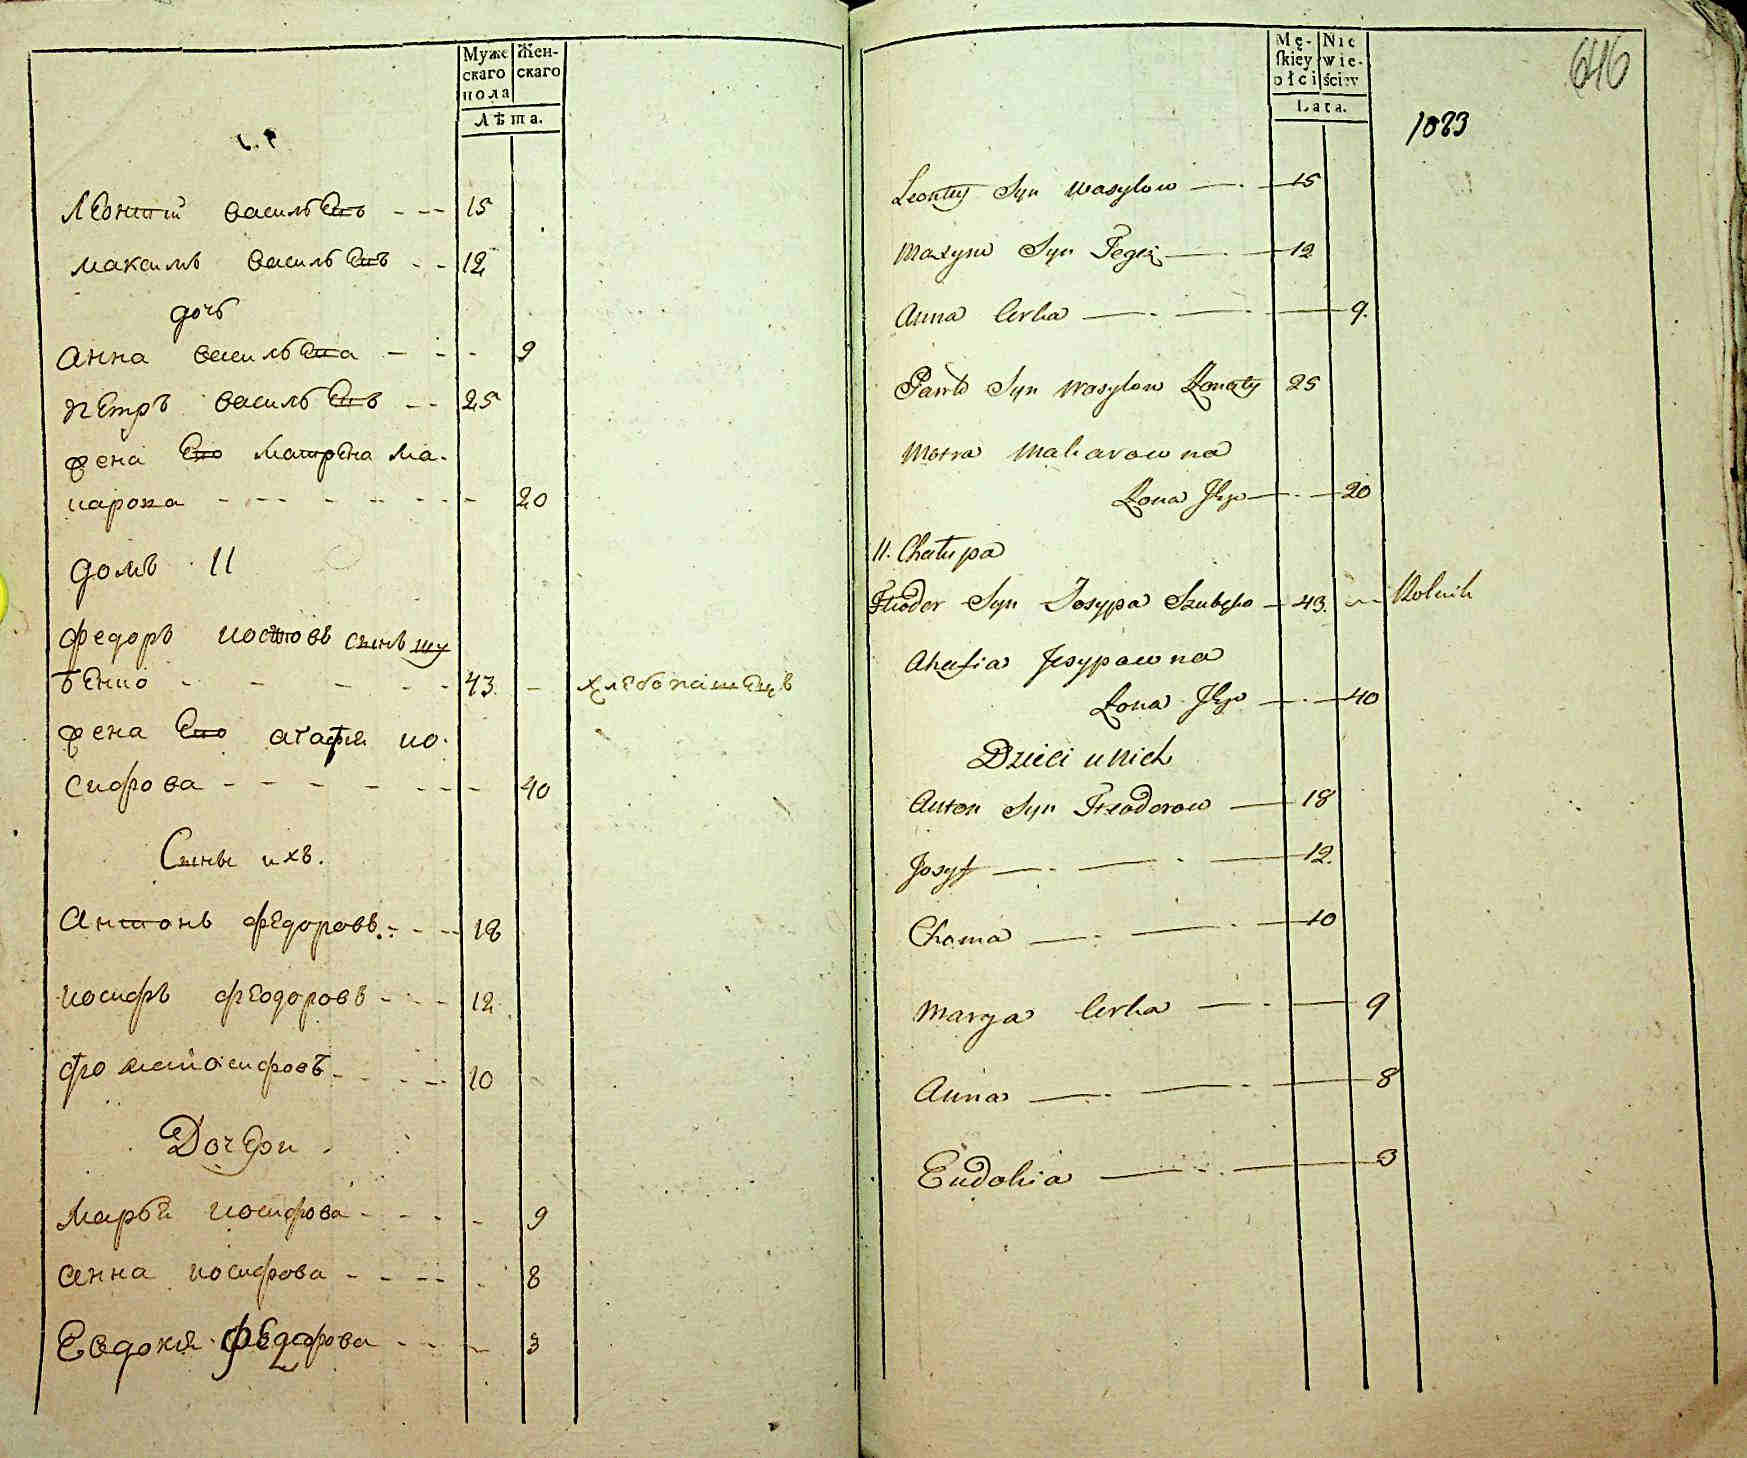 Муже
скаго
пола
Жен-
скаго
Лѣта.
Леонтий васильевъ - - - 15
максимъ васильевъ - - 12
дочь
анна васильева - - - 9
петръ васильевъ - - 25
жена его матрена ма-
карова - - - - - - - - 20
домъ 11
федоръ иосифовъ сынъ шу
бенко - - - - - 43. - хлебопашецъ
жена его агафия ио-
сифова - - - - - - - 40
Сыны ихъ.
антонъ федоровъ. - - - 18
иосифъ феодоровъ - - - 12
фома иосифовъ - - - - 10
Дочери
Марья иосифова - - - - 9
анна иосифова - - - - - 8
Евдокия федорова - - - 3
Mę-
ſkiey
płci
Nie
wie-
ściey
Lata.
646
1083
Leontey Syn Wasylow — . — 15
Maxym Syn Tegoż — . — 12
Anna Corka — . — . — 9.
Pawło Syn Wasylow Żonaty 25
Motra Makarowna
Żona Jego — . — 20
11. Chałupa
Fteodor Syn Josypa Szubęko — 43. Rolnik
Ahafia Jesypowna
Żona Jego — . — 40
Dzieci u Nich
Anton Syn Fteodorow — 18
Josyf — . — . — 12.
Choma — . — . — 10
Marya Corka — . — 9
Anna — . — . — 8
Eudokia — . . — 3